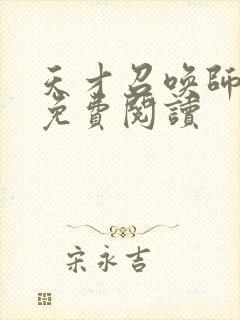 天才召喚師
免費閱讀
宋永吉